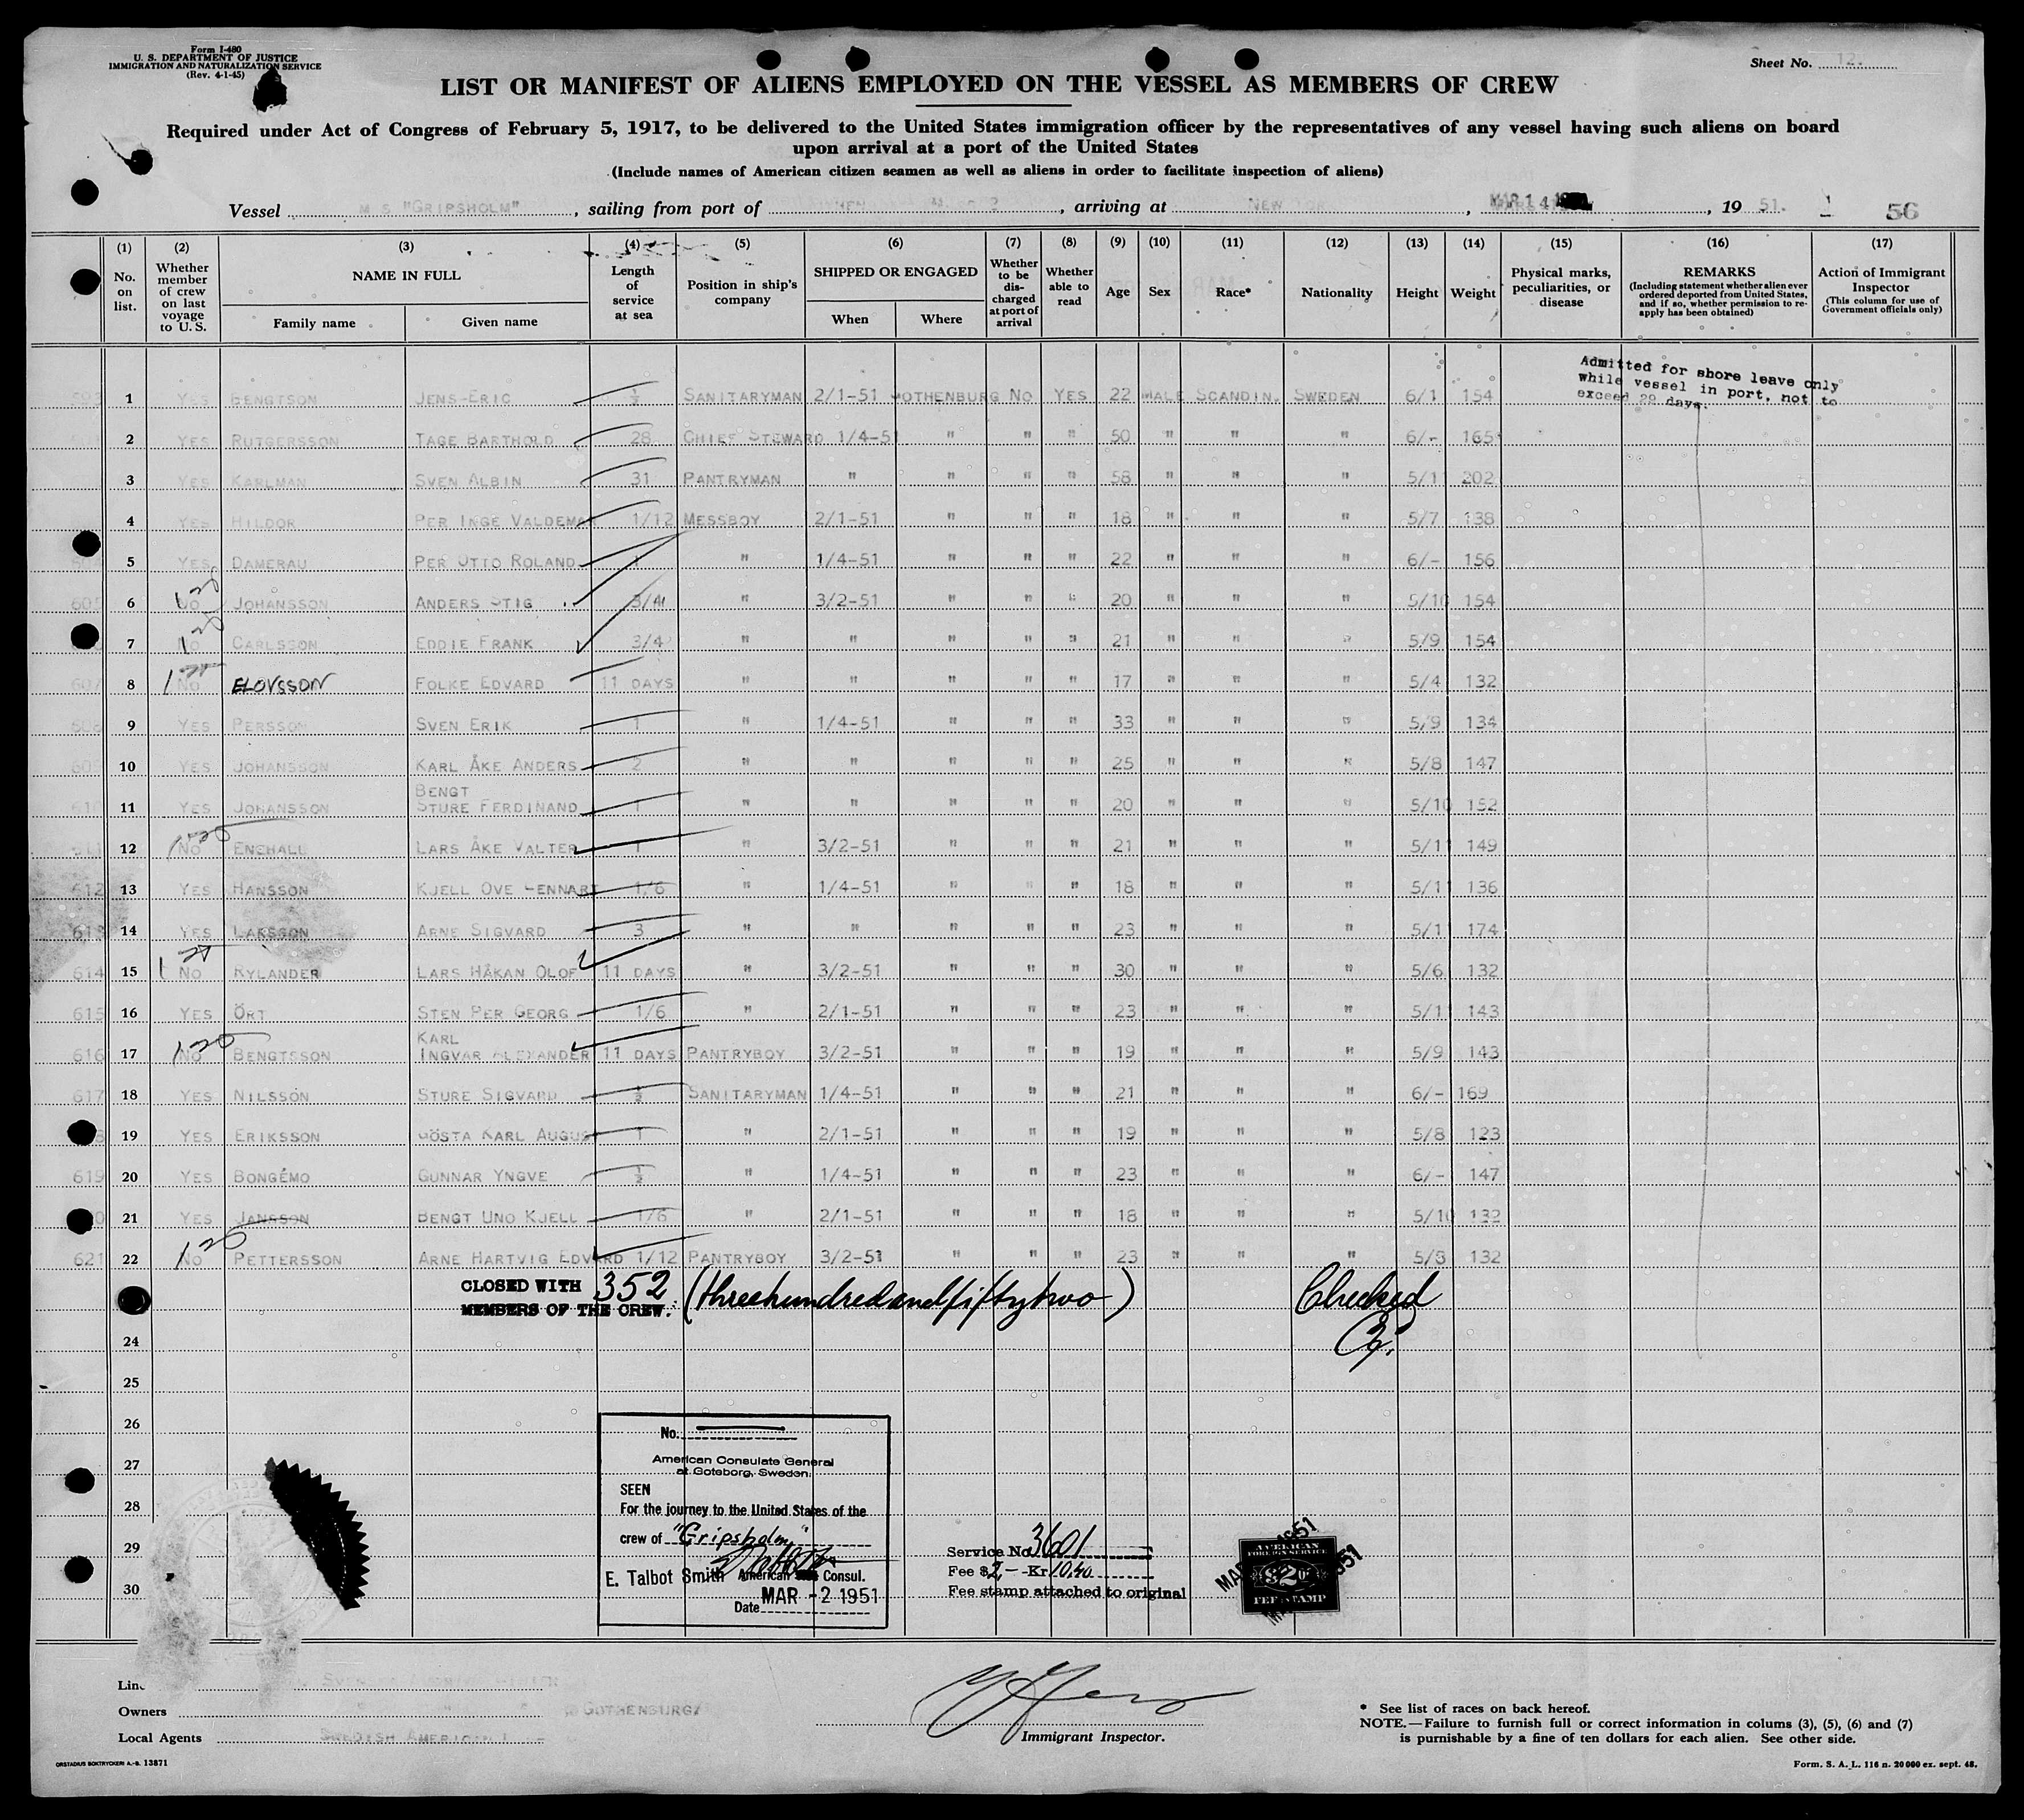 Form I-480
U. S. DEPARTMENT OF JUSTICE
IMMIGRATION AND NATURALIZATION SERVICE
(Rev. 4-1-45)
Sheet No. 12.
LIST OR MANIFEST OF ALIENS EMPLOYED ON THE VESSEL AS MEMBERS OF CREW
Required under Act of Congress of February 5, 1917, to be delivered to the United States immigration officer by the representatives of any vessel having such aliens on board
upon arrival at a port of the United States
(Include names of American citizen seamen as well as aliens in order to facilitate inspection of aliens)
Vessel M S "GRIPSHOLM", sailing from port of , arriving at NEW YOR, MAR 14 , 19 51. 56
(1) (2) (3) (4) (5) (6) (7) (8) (9) (10) (11) (12) (13) (14) (15) (16) (17)
No. on list.
Whether member of crew on last voyage to U. S.
NAME IN FULL
Family name
Given name
Length of service at sea
Position in ship's company
SHIPPED OR ENGAGED
When
Where
Whether to be discharged at port of arrival
Whether able to read
Age
Sex
Race*
Nationality
Height
Weight
Physical marks, peculiarities, or disease
REMARKS
(Including statement whether alien ever ordered deported from United States, and if so, whether permission to reapply has been obtained)
Action of Immigrant Inspector
(This column for use of Government officials only)
Admitted for shore leave only
while vessel in port, not to
exceed 29 days.
1 YES BENGTSON JENS-ERIC ½ SANITARYMAN 2/1-51 GOTHENBURG NO YES 22 MALE SCANDIN. SWEDEN 6/1 154
2 YES RUTGERSSON TAGE BARTHOLD 28 CHIEF STEWARD 1/4-51 " " " 50 " " " 6/- 165
3 YES KARLMAN SVEN ALBIN 31 PANTRYMAN " " " " 58 " " " 5/11 202
4 YES HILDOR PER INGE VALDEMAR 1/12 MESSBOY 2/1-51 " " " 18 " " " 5/7 138
604 5 YES DAMERAU PER OTTO ROLAND 1 " 1/4-51 " " " 22 " " " 6/- 156
605 6 NO JOHANSSON ANDERS STIG 3/4 " 3/2-51 " " " 20 " " " 5/10 154
7 NO CARLSSON EDDIE FRANK 3/4 " " " " " 21 " " " 5/9 154
607 8 NO ELOVSSON FOLKE EDVARD 11 DAYS " " " " " 17 " " " 5/4 132
608 9 YES PERSSON SVEN ERIK 1 " 1/4-51 " " " 33 " " " 5/9 134
609 10 YES JOHANSSON KARL ÅKE ANDERS 2 " " " " " 25 " " " 5/8 147
610 11 YES JOHANSSON BENGT STURE FERDINAND 1 " " " " " 20 " " " 5/10 152
611 12 NO ENEHALL LARS ÅKE VALTER 1 " 3/2-51 " " " 21 " " " 5/11 149
612 13 YES HANSSON KJELL OVE LENNART 1/6 " 1/4-51 " " " 18 " " " 5/11 136
613 14 YES LARSSON ARNE SIGVARD 3 " " " " " 23 " " " 5/11 174
614 15 NO RYLANDER LARS HÅKAN OLOF 11 DAYS " 3/2-51 " " " 30 " " " 5/6 132
615 16 YES ÖRT STEN PER GEORG 1/6 " 2/1-51 " " " 23 " " " 5/11 143
616 17 NO BENGTSSON KARL INGVAR ALEXANDER 11 DAYS PANTRYBOY 3/2-51 " " " 19 " " " 5/9 143
617 18 YES NILSSON STURE SIGVARD ½ SANITARYMAN 1/4-51 " " " 21 " " " 6/- 169
19 YES ERIKSSON GÖSTA KARL AUGUST 1 " 2/1-51 " " " 19 " " " 5/8 123
619 20 YES BONGÉMO GUNNAR YNGVE ½ " 1/4-51 " " " 23 " " " 6/- 147
21 YES JANSSON BENGT UNO KJELL 1/6 " 2/1-51 " " " 18 " " " 5/10 132
621 22 NO PETTERSSON ARNE HARTVIG EDVARD 1/12 PANTRYBOY 3/2-51 " " " 23 " " " 5/8 132
CLOSED WITH 352 (threehundredandfiftytwo) Checked
MEMBERS OF THE CREW.
24
25
26
27
28
29
30
No.
American Consulate General
at Goteborg, Sweden.
SEEN
For the journey to the United States of the
crew of "Gripsholm"
E. Talbot Smith American Consul.
Date MAR -2 1951
Service No. 3601
Fee $ 2,- -Kr 10.40
Fee stamp attached to original
AMERICAN
FOREIGN SERVICE
$2
FEE STAMP
Line
Owners " " " GOTHENBURG/
Local Agents SWEDISH AMERICAN L
Immigrant Inspector.
* See list of races on back hereof.
NOTE.—Failure to furnish full or correct information in colums (3), (5), (6) and (7)
is punishable by a fine of ten dollars for each alien. See other side.
ORSTADIUS BOKTRYCKERI A.-B. 13871
Form. S. A. L. 116 n. 20 000 ex. sept. 48.